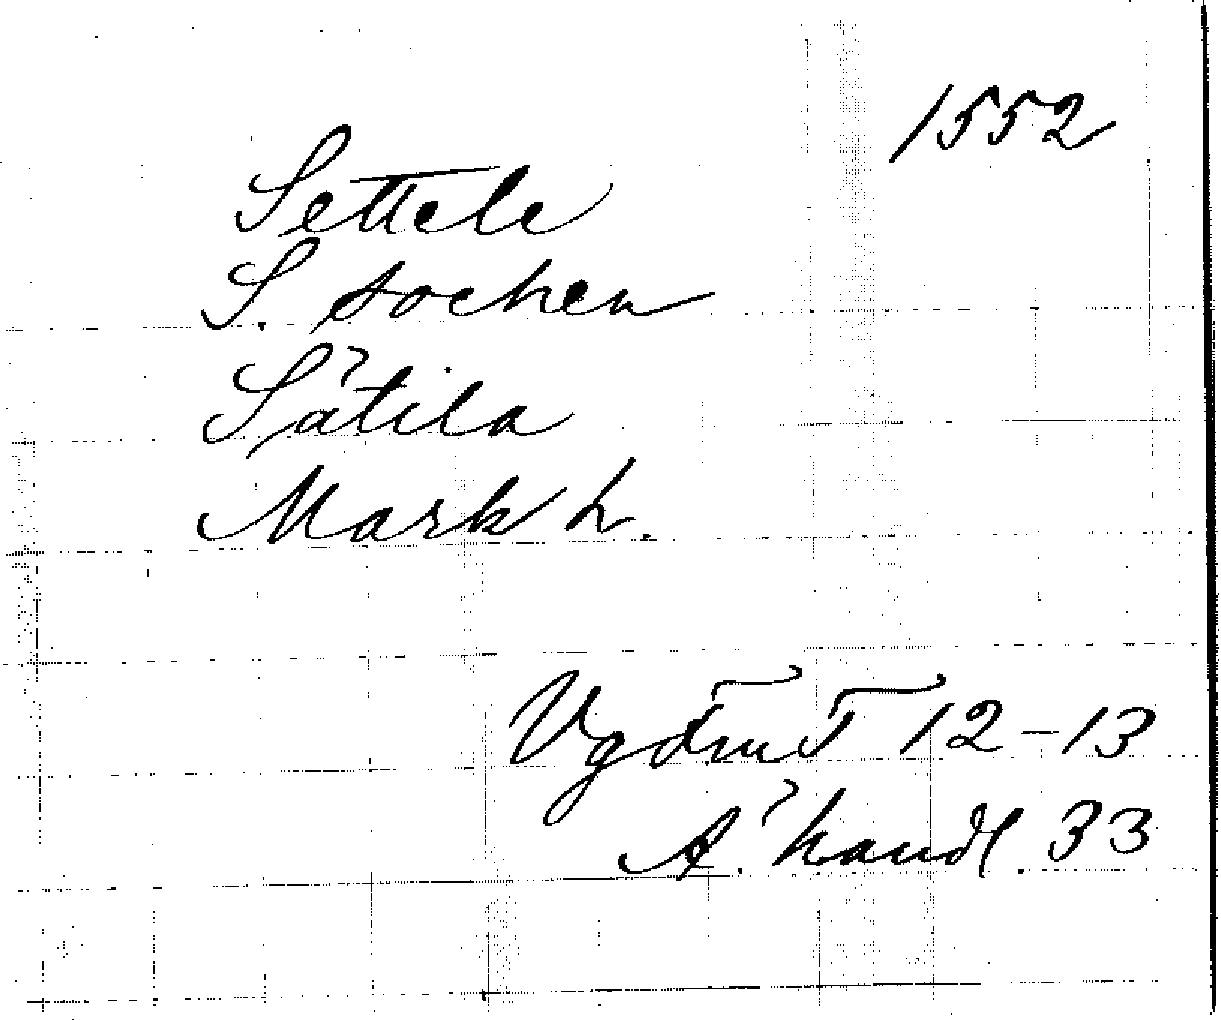 1552
Settele
S. sochen
Sätila
Mark h.
Vgöm T 12-13
Ä. handl. 33